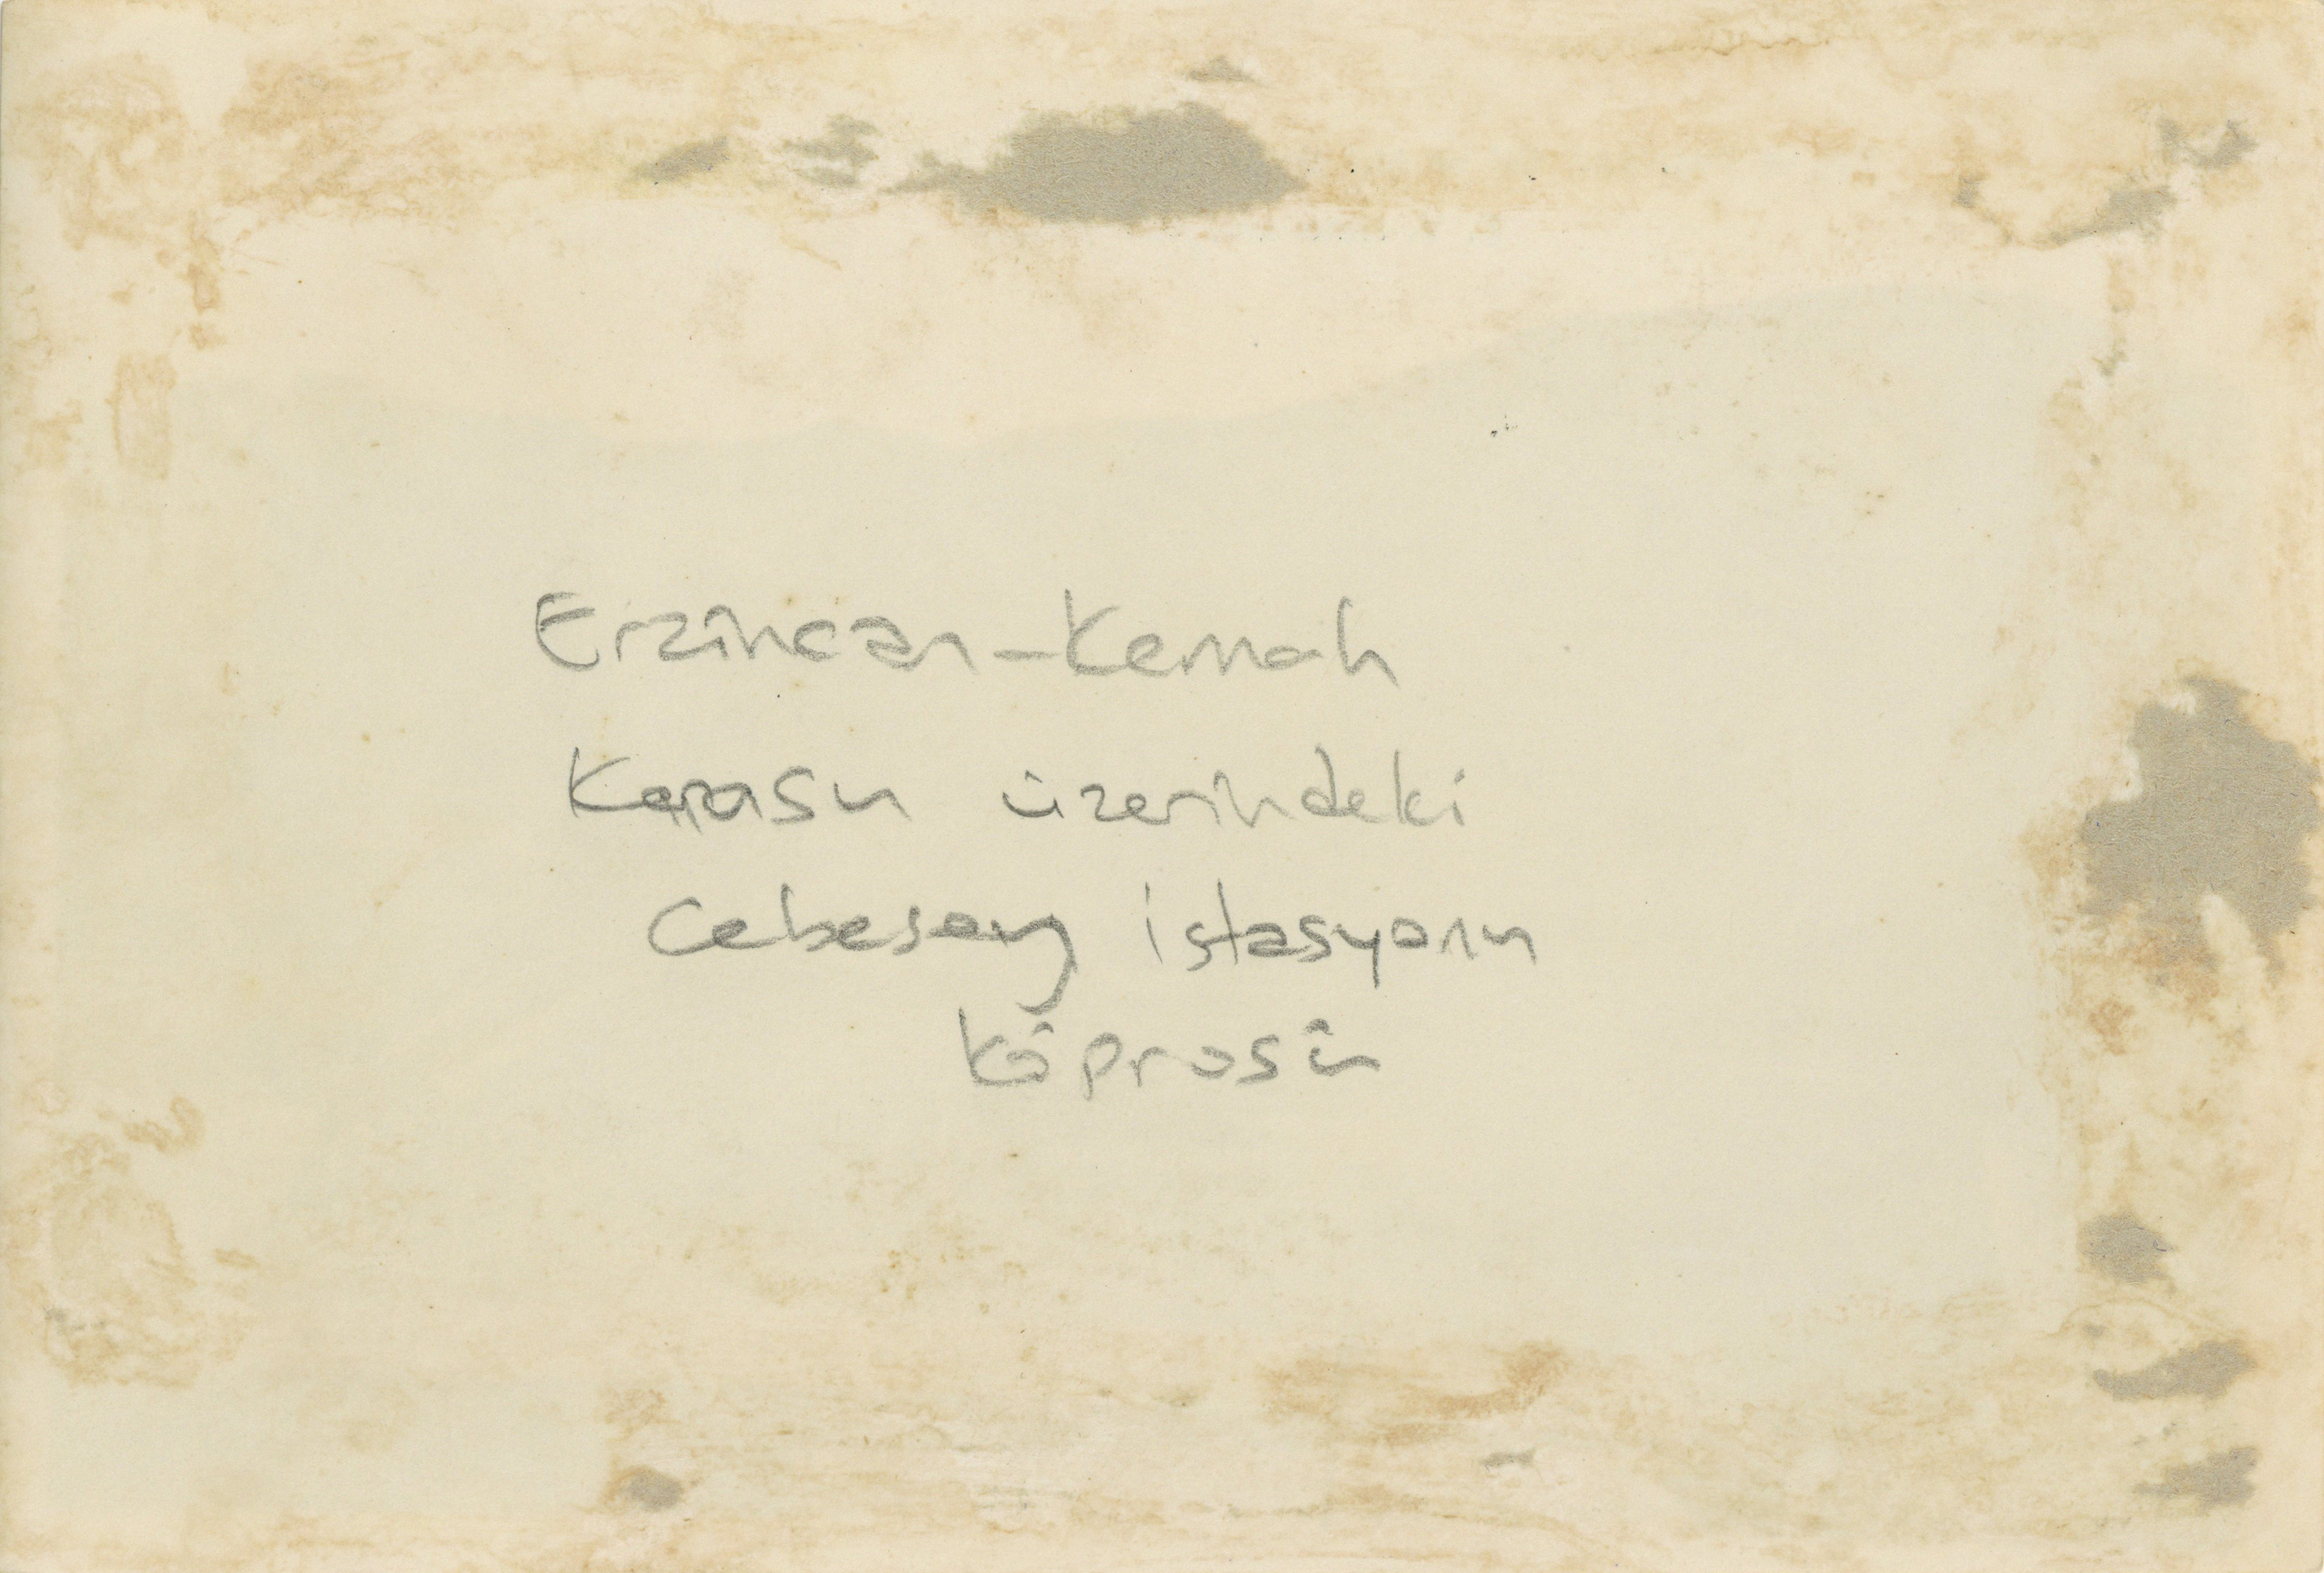 Erzincan-Kemah
Karasu üzerindeki
Cebesoy istasyonu
köprüsü